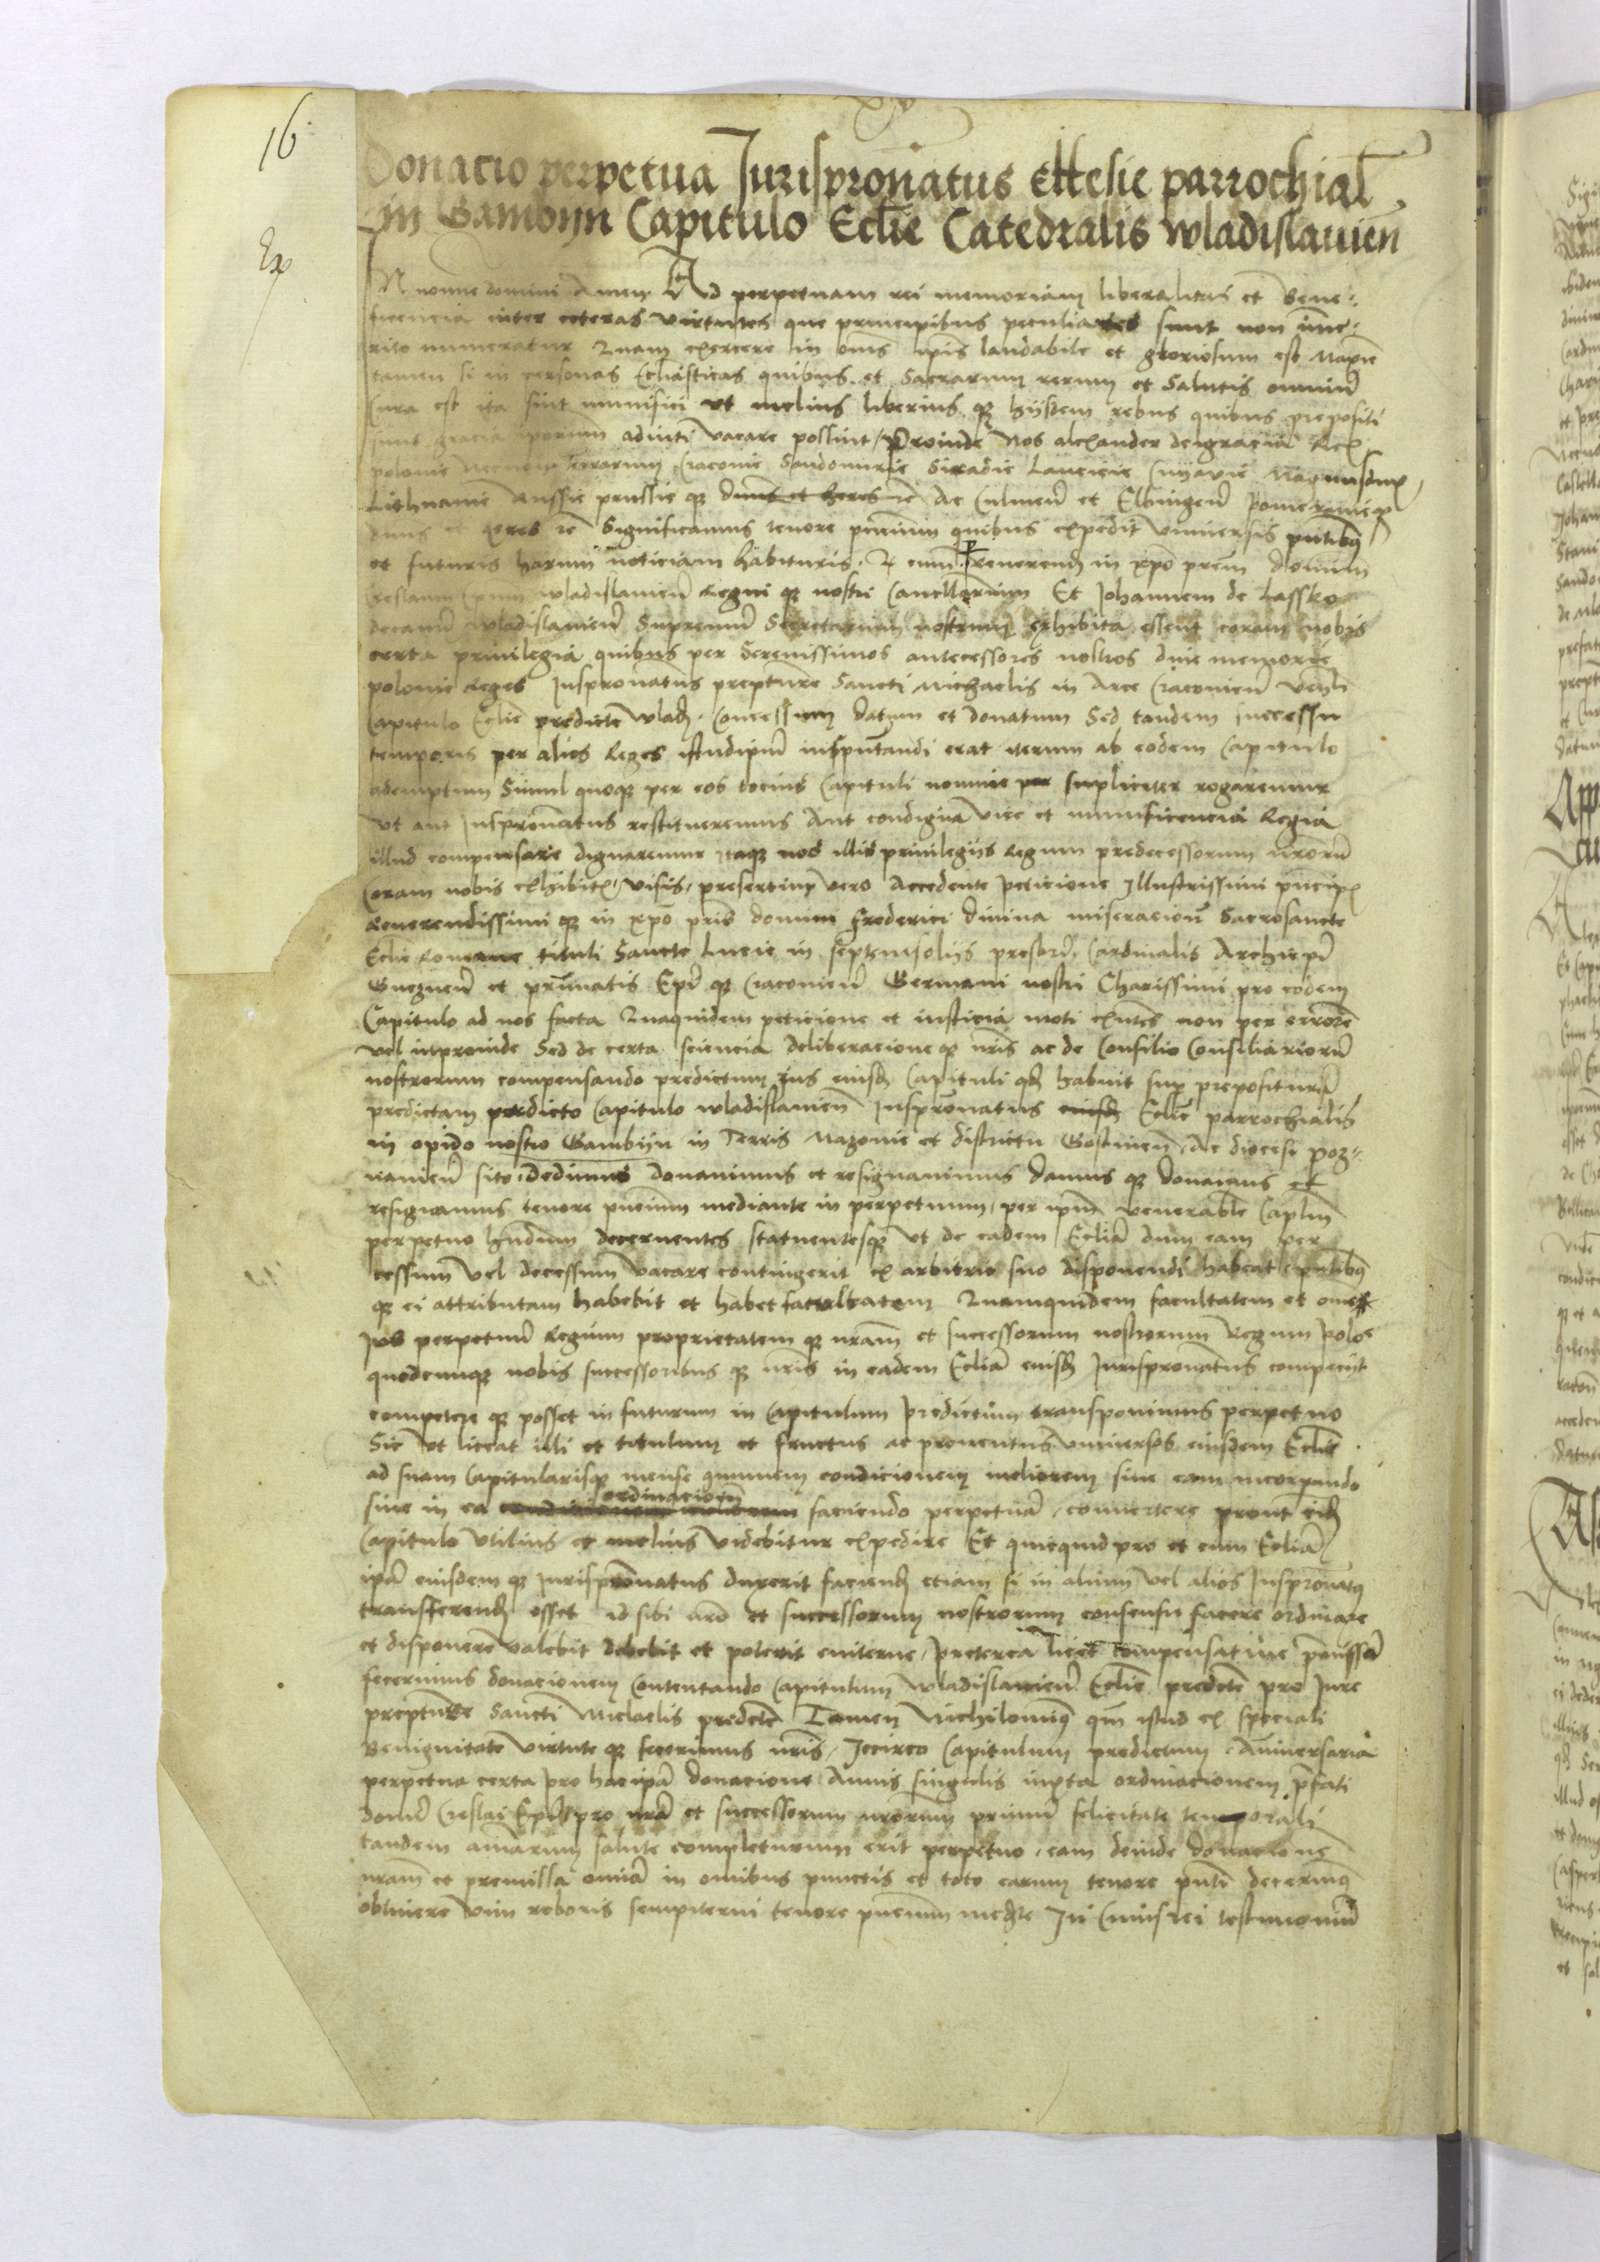 16
Donacio perpetua Jurispronatus Ecclesie parrochial
in Gambyn Capitulo Eclie Catedralis wladislauien
Ex
N nomine domini Amen Ad perpetuam rei memoriam liberalitas et bene-
ficencia inter ceteras virtutes que principibus peculiares sunt non imme-
rito numeratur Quam exercere in omnis laudabile et gloriosum est Maxime
tamen si in personas Ecliasticas quibus et Sacrarum rerum et Salutis omnium
Cura est ita sint munifici vt melius liberius qz hijsdem rebus quibus prepositi
sunt gracia ipsorum adiuti vacare possint Proinde Nos Alexander deigracia Rex
polonie Necnon terrarum Cracouie Sandomirie Siradie Lancicie Cuyauie Magnusdux
Lithuanie Russie prussie qz duns et heres rc Ac Culmen et Elbingen Pomeranieqz
duns et heres rc Significamus tenore pncium quibus expedit vniuersis pntibus
et futuris harum noticiam habituris Q cum per reuerendum in xpo prem dominum
Creslaum Epum wladislauien Regni qz nostri Cancellarium Et Johannem de Lassko
decanum wladislauien Supremum Secretarium nostrum exhibita essent coram nobis
certa priuilegia quibus per Serenissimos antecessores nostros diue memorie
polonie Reges Juspronatus prepture Sancti Michaelis in Arce Cracouien Venli
Capitulo Eclie predicte wlad. Concessum datum et donatum Sed tandem successu
temporis per alios Reges iterum ab eodem Capitulo
ademptum Simul quoqz per eos tocius Capituli nomine supliciter rogaremur
vt aut Juspronatus restitueremus Aut condigna vice et munificencia Regia
illud compensare dignaremur itaqz nos illis priuilegijs Regum predecessorum nrorum
Coram nobis exhibitis visis presertim vero Accedente peticione Illustrissimi pncipis
Reuerendissimi qz in xpo pris domini Frederici diuina miseracione Sacrosancte
Eclie Romane tituli Sancte Lucie in septemsolijs presbri Cardinalis Archiepi
Gneznen et primatis Epi qz Cracouien Germani nostri Charissimi pro eodem
Capitulo ad nos facta Quaquidem peticione et iusticia moti exntes non per errorem
vel inprouide Sed de certa sciencia deliberacione qz nris ac de Consilio Consiliariorum
nostrorum compensando predictum ius eiusd Capituli qd habuit sup preposituram
predictam predicto Capitulo wladislauien Juspronatus eiusd Eclie parrochialis
in opido nostro Gambijn in Terris Mazouie et districtu Gostinen Ac diocesi poz-
nanien sito Dedimus donauimus et resignauimus damus qz donamus et
resignamus tenore pncium mediante in perpetuum per ipm venerable Caplm
perpetuo hndum decernentes statuentesqz vt de eadem Eclia dum eam per
cessum vel decessum vacare contingerit ex arbitrio suo disponendi habeat
qz ei attributam habebit et habet facultatem Quamquidem facultatem et omne
Jus perpetuum Regum proprietatem qz nram et successorum nostrorum Regum Polo
quodcunqz nobis successoribus qz nris in eadem Eclia eiusd Jurispronatus competijt
competere qz posset in futurum in Capitulum predictum transponimus perpetuo
Sic vt liceat illi et titulum et fructus ac prouentus vniuersos eiusdem Eclie
ad suam Capitularisqz mense communem condicionem meliorem siue eam incorpando
siue in ea condicionem meliorem ordinacionem faciendo perpetuam conuertere prout eid
Capitulo vtilius et melius videbitur expedire Et quicquid pro et cum Eclia
ipa eiusdem qz Jurispronatus duxerit faciend etiam si in alium vel alios Juspronatus
transferend esset id sibi nro et successorum nostrorum consensu facere ordinare
et disponere valebit debebit et poterit euiterne Preterea licet compensatiue premissam
fecerimus donacionem Contentando Capitulum wladislauien Eclie predicte pro Jure
prepture Sancti Michaelis predicte Tamen Nichilominus qm istud ex speciali
Benignitate virtute qz fecerimus nris Jccirco Capitulum predictum Aniuersaria
perpetua certa pro hac ipa donacione Annis singulis iuxta ordinacionem pfati
domini Creslai Epi pro nra et successorum nrorum primum felicitate temporali
tandem animarum salute completurum erit perpetuo eam deinde donacionem
nram et premissa omnia in omibus punctis et toto earum tenore pnti decernimus
obtinere vim roboris sempiterni tenore pncium medte In Cuius rei testimonium